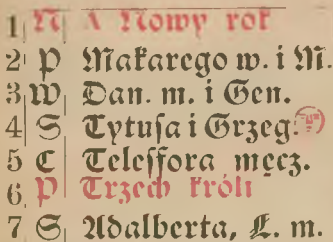 1 N A Nowy rok
2 P Makarego w. i M.
3 W Dan. m. i Gen.
4 S Tytusa i Grzeg.
5 C Telessfora męcz.
6 P Trzech króli
7 S Adalberta, L. m.